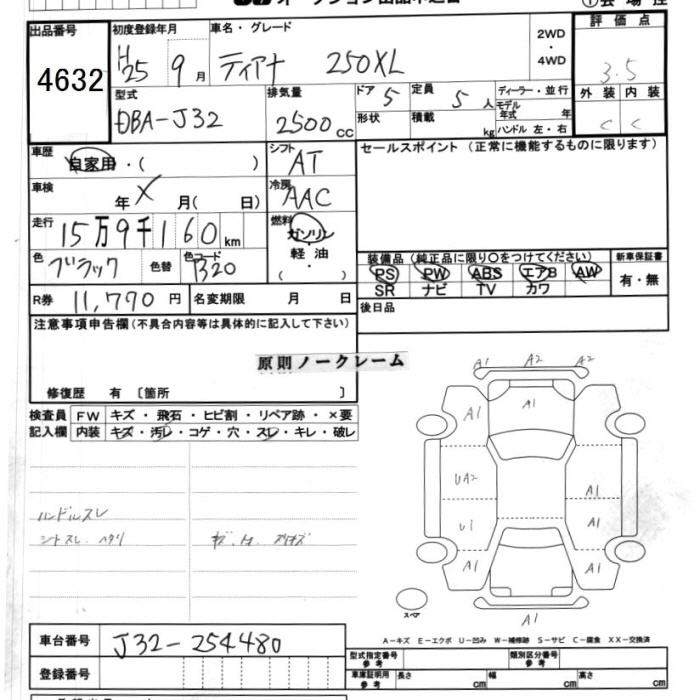 オークション出品申込書
出品番号 初度登録年月 車名・グレード 2WD・4WD 評価点
4632 H25 9月 ティアナ 250XL 3.5
型式 排気量 ドア 定員 ディーラー・並行 外装 内装
DBA-J32 2500cc 5 5人 モデル年式 年 C C
形状 積載 kg ハンドル 左・右
車歴 自家用・( ) シフト AT セールスポイント (正常に機能するものに限ります)
車検 年 X 月( 日) 冷房 AAC
走行 15万9千160km 燃料 ガソリン・軽油・( )
色 ブラック 色替 色コード B20
装備品 (純正品に限り○をつけてください) 新車保証書
PS PW ABS エアB AW 有・無
SR ナビ TV カワ
R券 11,790円 名変期限 月 日 後日品
注意事項申告欄(不具合内容等は具体的に記入して下さい)
原則ノークレーム
修復歴 有 〔箇所 〕
検査員 FW キズ・飛石・ヒビ割・リペア跡・×要
記入欄 内装 キズ・汚レ・コゲ・穴・スレ・キレ・破レ
ハンドルスレ
シートスレ・ヘタリ
A1 A2 A2
A1 A1
UA2 A1
U1 A1
A1 A1
A1
スペア
A-キズ E-エクボ U-凹み W-補修跡 S-サビ C-腐食 XX-交換済
車台番号 J32-254480
型式指定番号 参考 類別区分番号 参考
登録番号 車庫証明用 参考 長さ cm 幅 cm 高さ cm